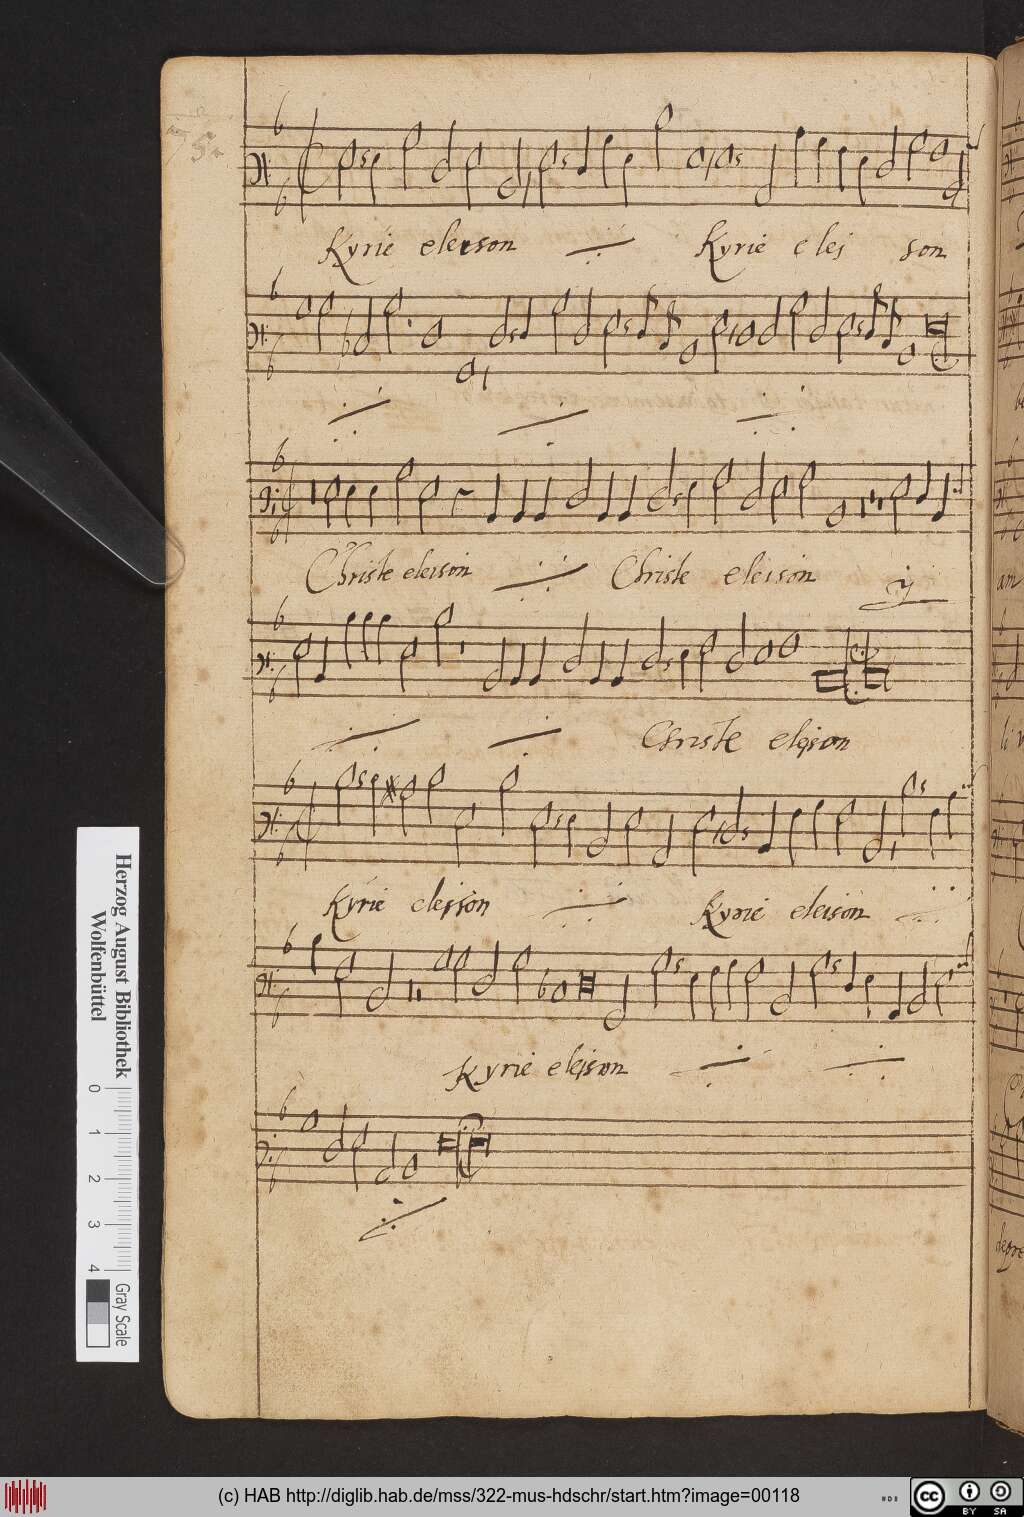 75.
Kyrie eleeson Kyrie elej son
Christe eleison Christe eleison ij
Christe elejson
Kyrie elejson Kyrie eleison
Kyrie elejson
Herzog August Bibliothek
Wolfenbüttel
0 1 2 3 4
Gray Scale
(c) HAB http://diglib.hab.de/mss/322-mus-hdschr/start.htm?image=00118
HAB
cc
BY SA